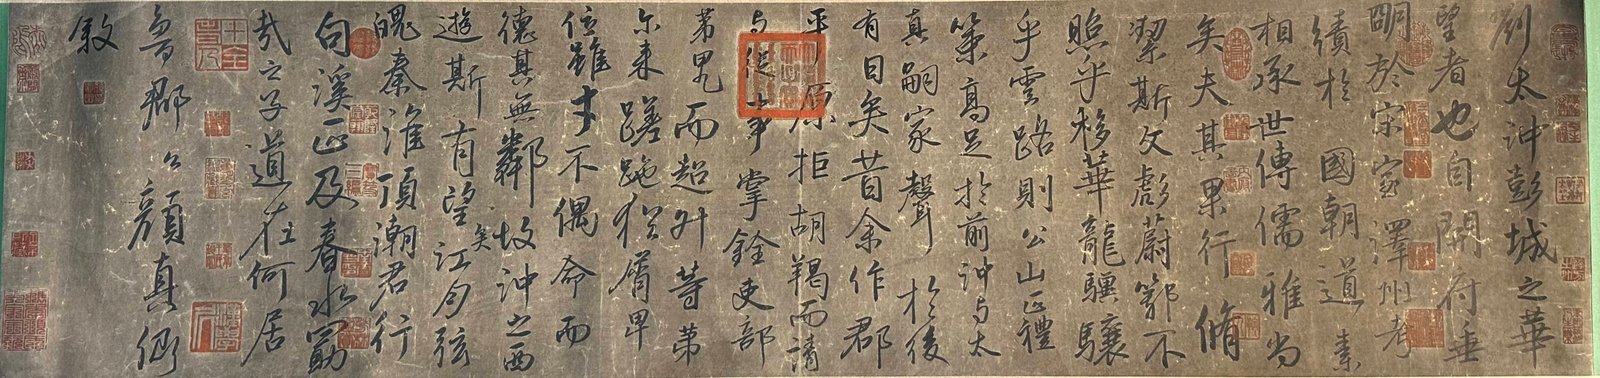 劉太沖彭城之華
望者也自開府垂
明於宋室澤州考
績於國朝道素
相承世傳儒雅尚
矣夫其果行脩
潔斯文彪蔚鄂不
照乎移華龍驥驤
乎雲路則公山正禮
策高足於前沖与太
真嗣家聲於後
有日矣昔余作郡
平原拒胡羯而請
与從事掌銓吏部
第甲而超升等第
尔来蹉跎猶屑卑
位雖才不偶命而
德其無鄰故沖之西
遊斯有望矣江月弦
魄秦淮頂潮君行
句溪正及春水勖
哉之子道在何居
魯郡公顏真卿
叙